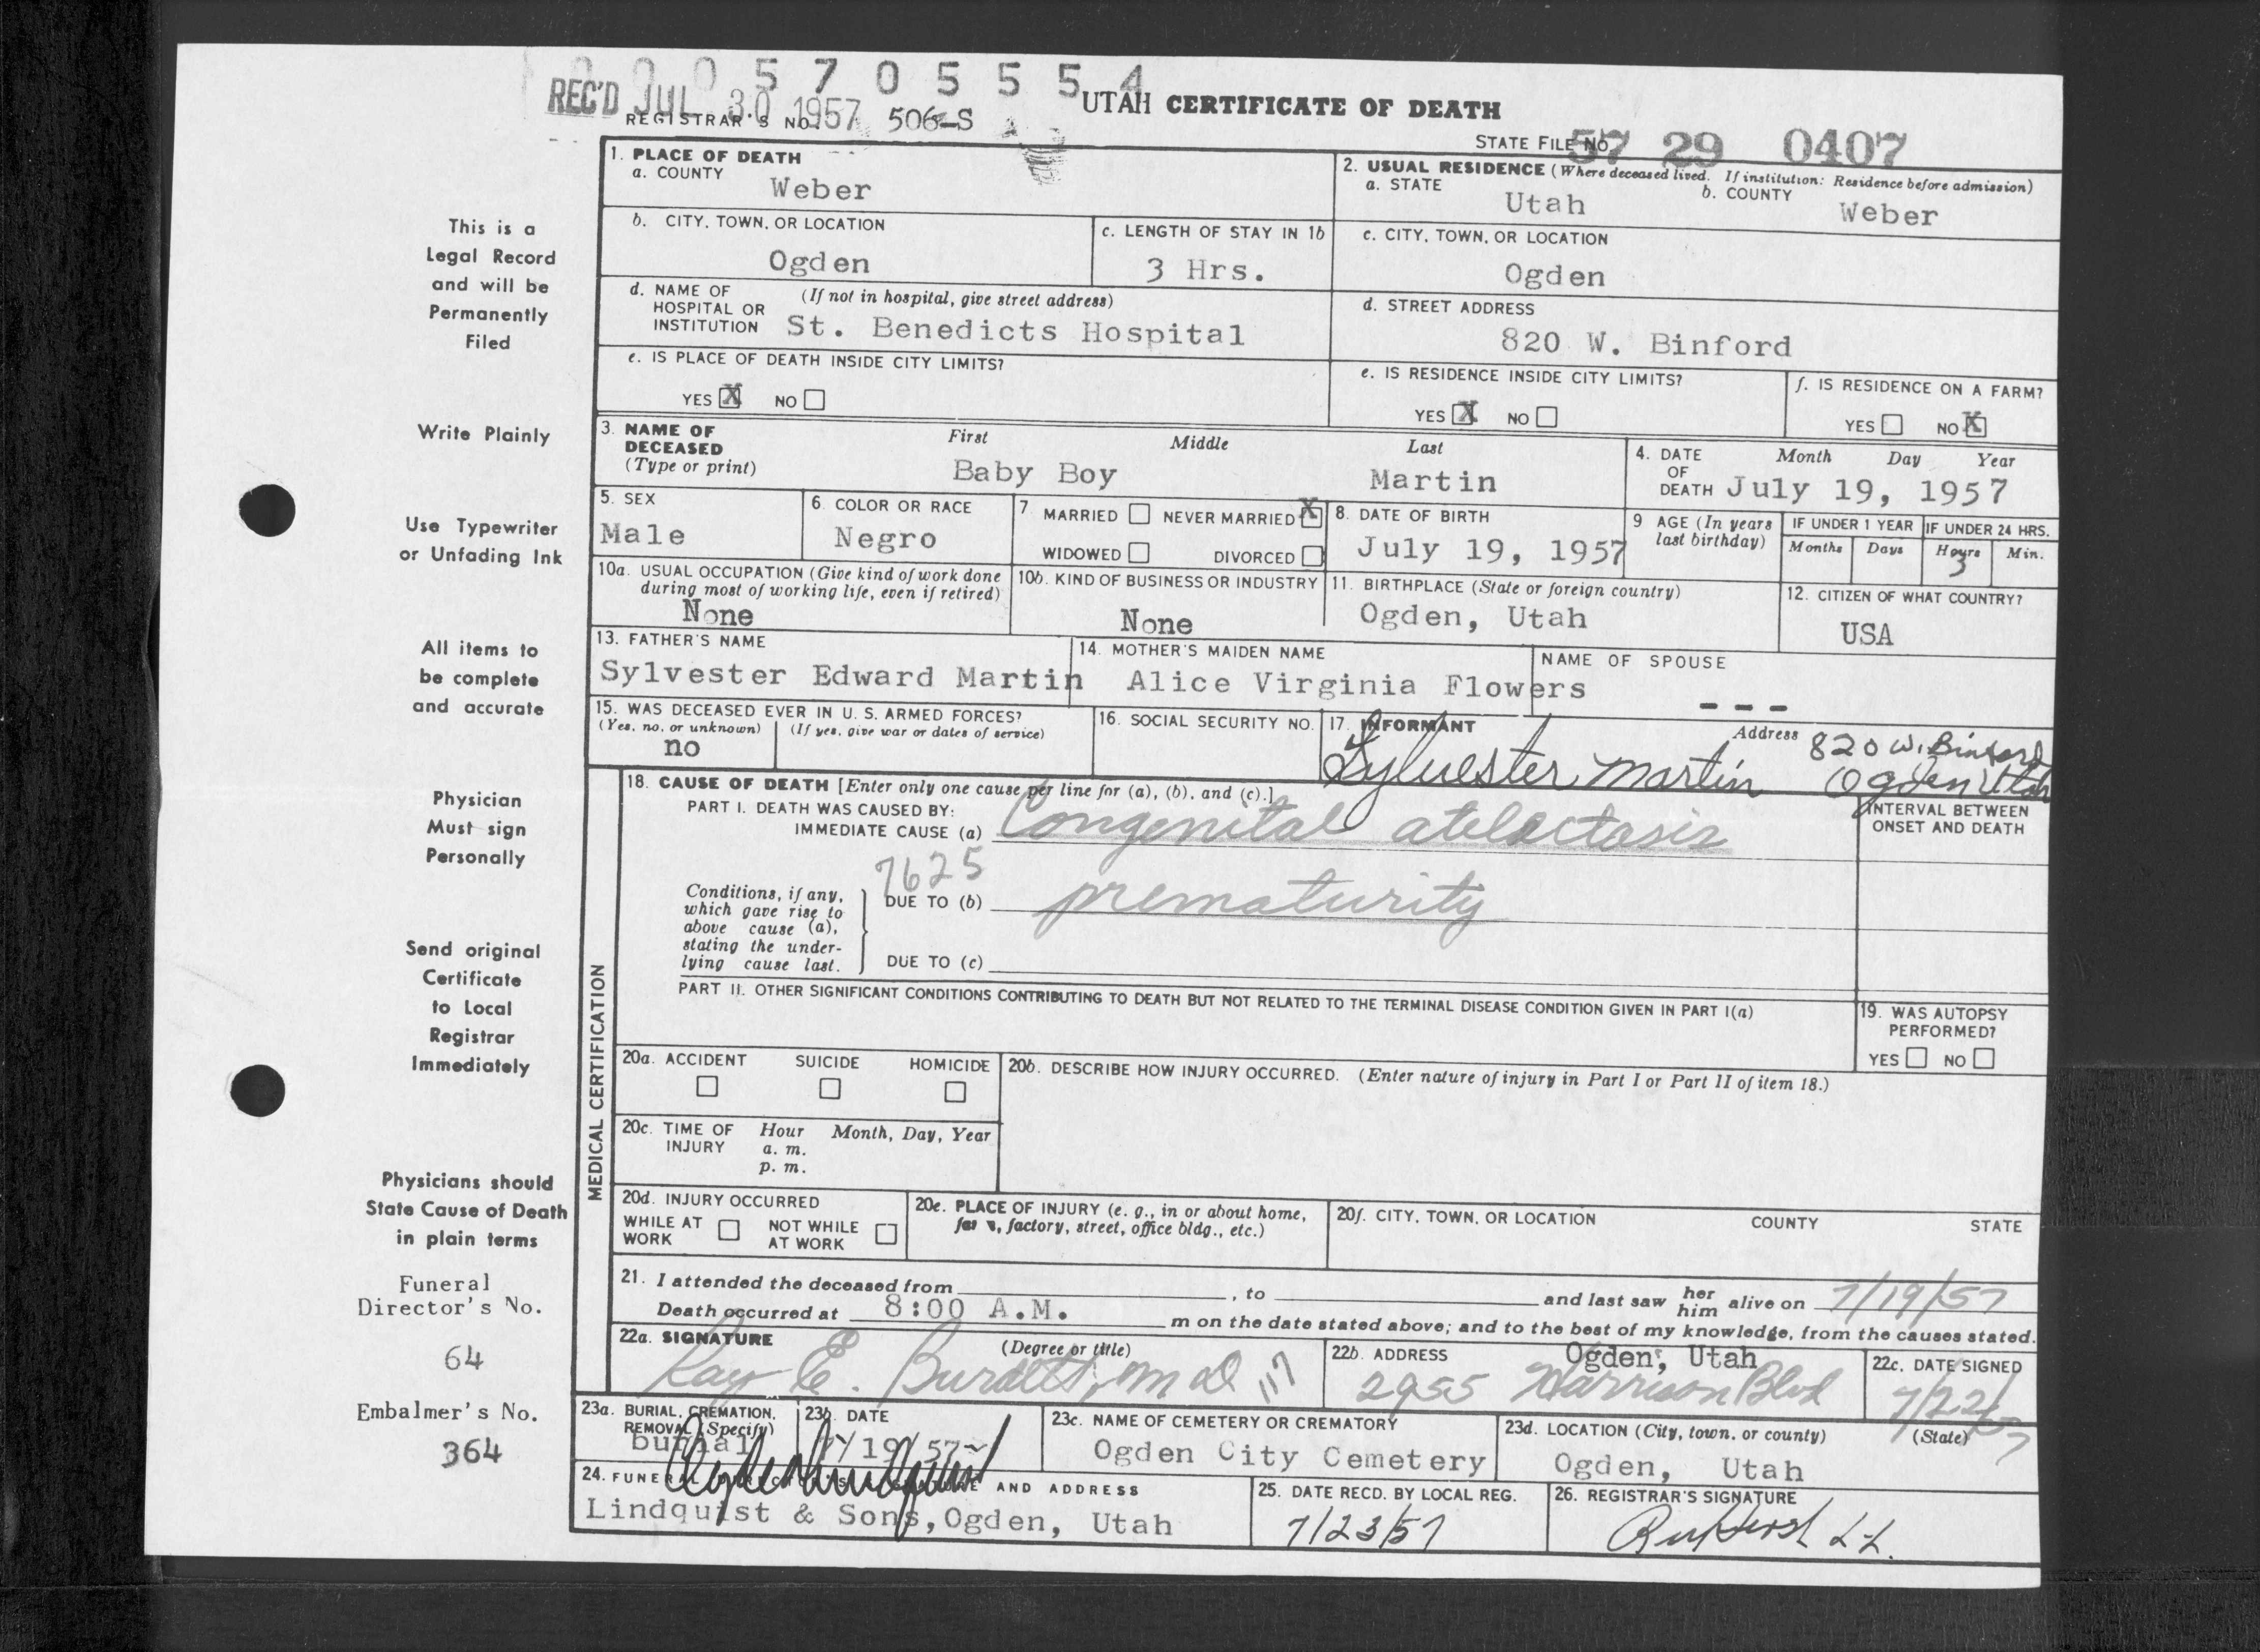 0 0 0 5 7 0 5 5 5 4
REC'D JUL 30 1957
REGISTRAR'S NO. 506-S
UTAH CERTIFICATE OF DEATH
STATE FILE NO. 57 29 0407
1. PLACE OF DEATH
a. COUNTY
Weber
2. USUAL RESIDENCE (Where deceased lived. If institution: Residence before admission)
a. STATE
Utah
b. COUNTY
Weber
b. CITY, TOWN, OR LOCATION
Ogden
c. LENGTH OF STAY IN 1b
3 Hrs.
c. CITY, TOWN, OR LOCATION
Ogden
d. NAME OF HOSPITAL OR INSTITUTION
(If not in hospital, give street address)
St. Benedicts Hospital
d. STREET ADDRESS
820 W. Binford
e. IS PLACE OF DEATH INSIDE CITY LIMITS?
YES X NO
e. IS RESIDENCE INSIDE CITY LIMITS?
YES X NO
f. IS RESIDENCE ON A FARM?
YES NO X
3. NAME OF DECEASED (Type or print)
First Middle Last
Baby Boy Martin
4. DATE OF DEATH
Month Day Year
July 19, 1957
5. SEX
Male
6. COLOR OR RACE
Negro
7 MARRIED NEVER MARRIED X
WIDOWED DIVORCED
8. DATE OF BIRTH
July 19, 1957
9 AGE (In years last birthday)
IF UNDER 1 YEAR
Months Days
IF UNDER 24 HRS.
Hours Min.
3
10a. USUAL OCCUPATION (Give kind of work done during most of working life, even if retired)
None
10b. KIND OF BUSINESS OR INDUSTRY
None
11. BIRTHPLACE (State or foreign country)
Ogden, Utah
12. CITIZEN OF WHAT COUNTRY?
USA
13. FATHER'S NAME
Sylvester Edward Martin
14. MOTHER'S MAIDEN NAME
Alice Virginia Flowers
NAME OF SPOUSE
- - -
15. WAS DECEASED EVER IN U. S. ARMED FORCES?
(Yes, no, or unknown) (If yes, give war or dates of service)
no
16. SOCIAL SECURITY NO.
17. INFORMANT
Sylvester Martin
Address 820 W. Binford
Ogden Utah
MEDICAL CERTIFICATION
18. CAUSE OF DEATH [Enter only one cause per line for (a), (b), and (c).]
PART I. DEATH WAS CAUSED BY:
IMMEDIATE CAUSE (a) Congenital atelectasis
INTERVAL BETWEEN ONSET AND DEATH
7625
Conditions, if any, which gave rise to above cause (a), stating the underlying cause last.
DUE TO (b) prematurity
DUE TO (c)
PART II. OTHER SIGNIFICANT CONDITIONS CONTRIBUTING TO DEATH BUT NOT RELATED TO THE TERMINAL DISEASE CONDITION GIVEN IN PART I(a)
19. WAS AUTOPSY PERFORMED?
YES NO
20a. ACCIDENT SUICIDE HOMICIDE
20b. DESCRIBE HOW INJURY OCCURRED. (Enter nature of injury in Part I or Part II of item 18.)
20c. TIME OF INJURY
Hour Month, Day, Year
a. m.
p. m.
20d. INJURY OCCURRED
WHILE AT WORK NOT WHILE AT WORK
20e. PLACE OF INJURY (e. g., in or about home, farm, factory, street, office bldg., etc.)
20f. CITY, TOWN, OR LOCATION COUNTY STATE
21. I attended the deceased from , to and last saw her him alive on 7/19/57
Death occurred at 8:00 A.M. m on the date stated above; and to the best of my knowledge, from the causes stated.
22a. SIGNATURE (Degree or title)
Ray E. Burdett, MD 117
22b. ADDRESS
Ogden, Utah
2955 Harrison Blvd
22c. DATE SIGNED
7/22/57
23a. BURIAL, CREMATION, REMOVAL (Specify)
burial
23b. DATE
7/19/57
23c. NAME OF CEMETERY OR CREMATORY
Ogden City Cemetery
23d. LOCATION (City, town, or county) (State)
Ogden, Utah
24. FUNERAL DIRECTOR'S SIGNATURE AND ADDRESS
Lindquist & Sons, Ogden, Utah
25. DATE RECD. BY LOCAL REG.
7/23/57
26. REGISTRAR'S SIGNATURE
This is a
Legal Record
and will be
Permanently
Filed
Write Plainly
Use Typewriter
or Unfading Ink
All items to
be complete
and accurate
Physician
Must sign
Personally
Send original
Certificate
to Local
Registrar
Immediately
Physicians should
State Cause of Death
in plain terms
Funeral
Director's No.
64
Embalmer's No.
364